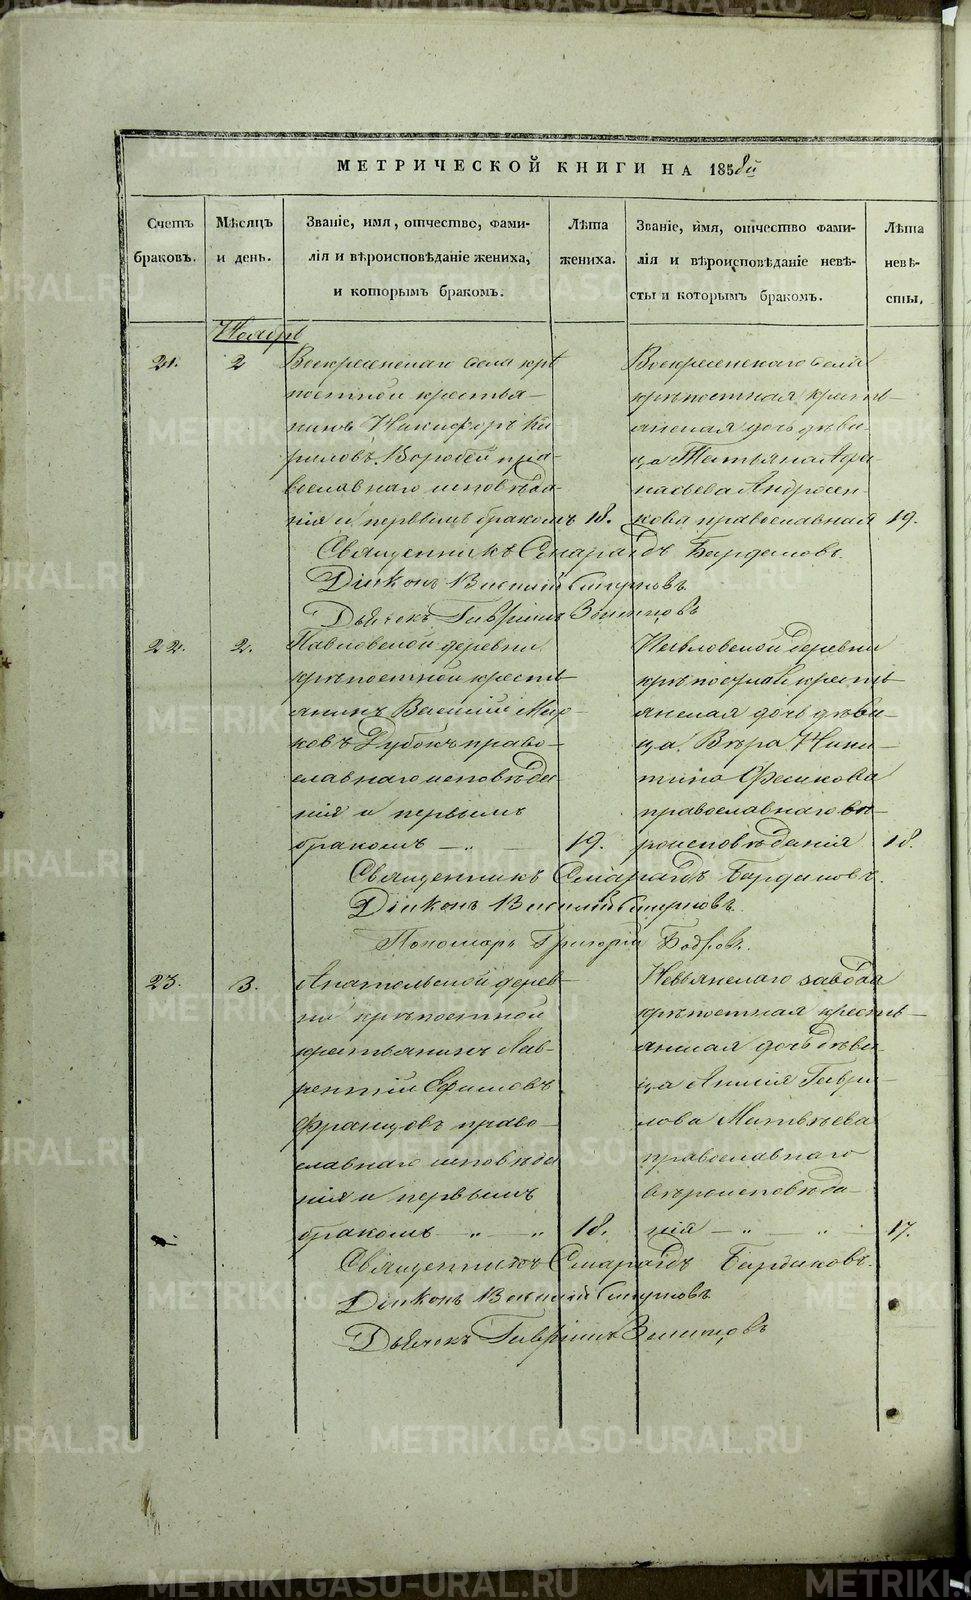 МЕТРИЧЕСКОЙ КНИГИ НА 1858й
Счетъ браковъ.
Мѣсяцъ и день.
Званіе, имя, отчество, фами-
лія и вѣроисповѣданіе жениха,
и которымъ бракомъ.
Лѣта жениха.
Званіе, имя, отчество фами-
лія и вѣроисповѣданіе невѣ-
сты и которымъ бракомъ.
Лѣта невѣ-
сты.
Ноябрь
21. 2
Воскресенскаго села крѣ
постной крестья-
нинъ Никифоръ Ки
риловъ Воробей пра-
вославнаго исповѣда-
нія и первымъ бракомъ 18.
Воскресенскаго села
крѣпостная кресть-
янская дочь дѣви-
ца Татьяна Афа
насьева Андросен-
кова православная 19.
Священникъ Смарагдъ Бардаковъ
Діаконъ Василій Смирновъ
Дьячекъ Гавріилъ Земляницовъ
22. 2.
Павловской деревни
крѣпостной кресть-
янинъ Василій Мар-
ковъ Дубокъ право-
славнаго исповѣда
нія и первымъ
бракомъ 19.
Павловской деревни
крѣпостная кресть
янская дочь дѣви-
ца Вѣра Ники-
тина
православнаго вѣ-
роисповѣданія 18.
Священникъ Смарагдъ Бардаковъ.
Діаконъ Василій Смирновъ.
Пономарь Григорій Бобровъ.
23. 3.
Анатольской дерев-
ни крѣпостной
крестьянинъ Лав-
рентій Ефимовъ
Францовъ право-
славнаго исповѣда
нія и первымъ
бракомъ — „ — „ 18.
Невьянскаго завода
крѣпостная кресть-
янская дочь дѣви-
ца Анисія Гаври-
лова Матвѣева
православнаго
вѣроисповѣда-
нія — „ — „ — 17.
Священникъ Смарагдъ Бардаковъ.
Діаконъ Василій Смирновъ
Дьячекъ Гавріилъ
METRIKI.GASO-URAL.RU